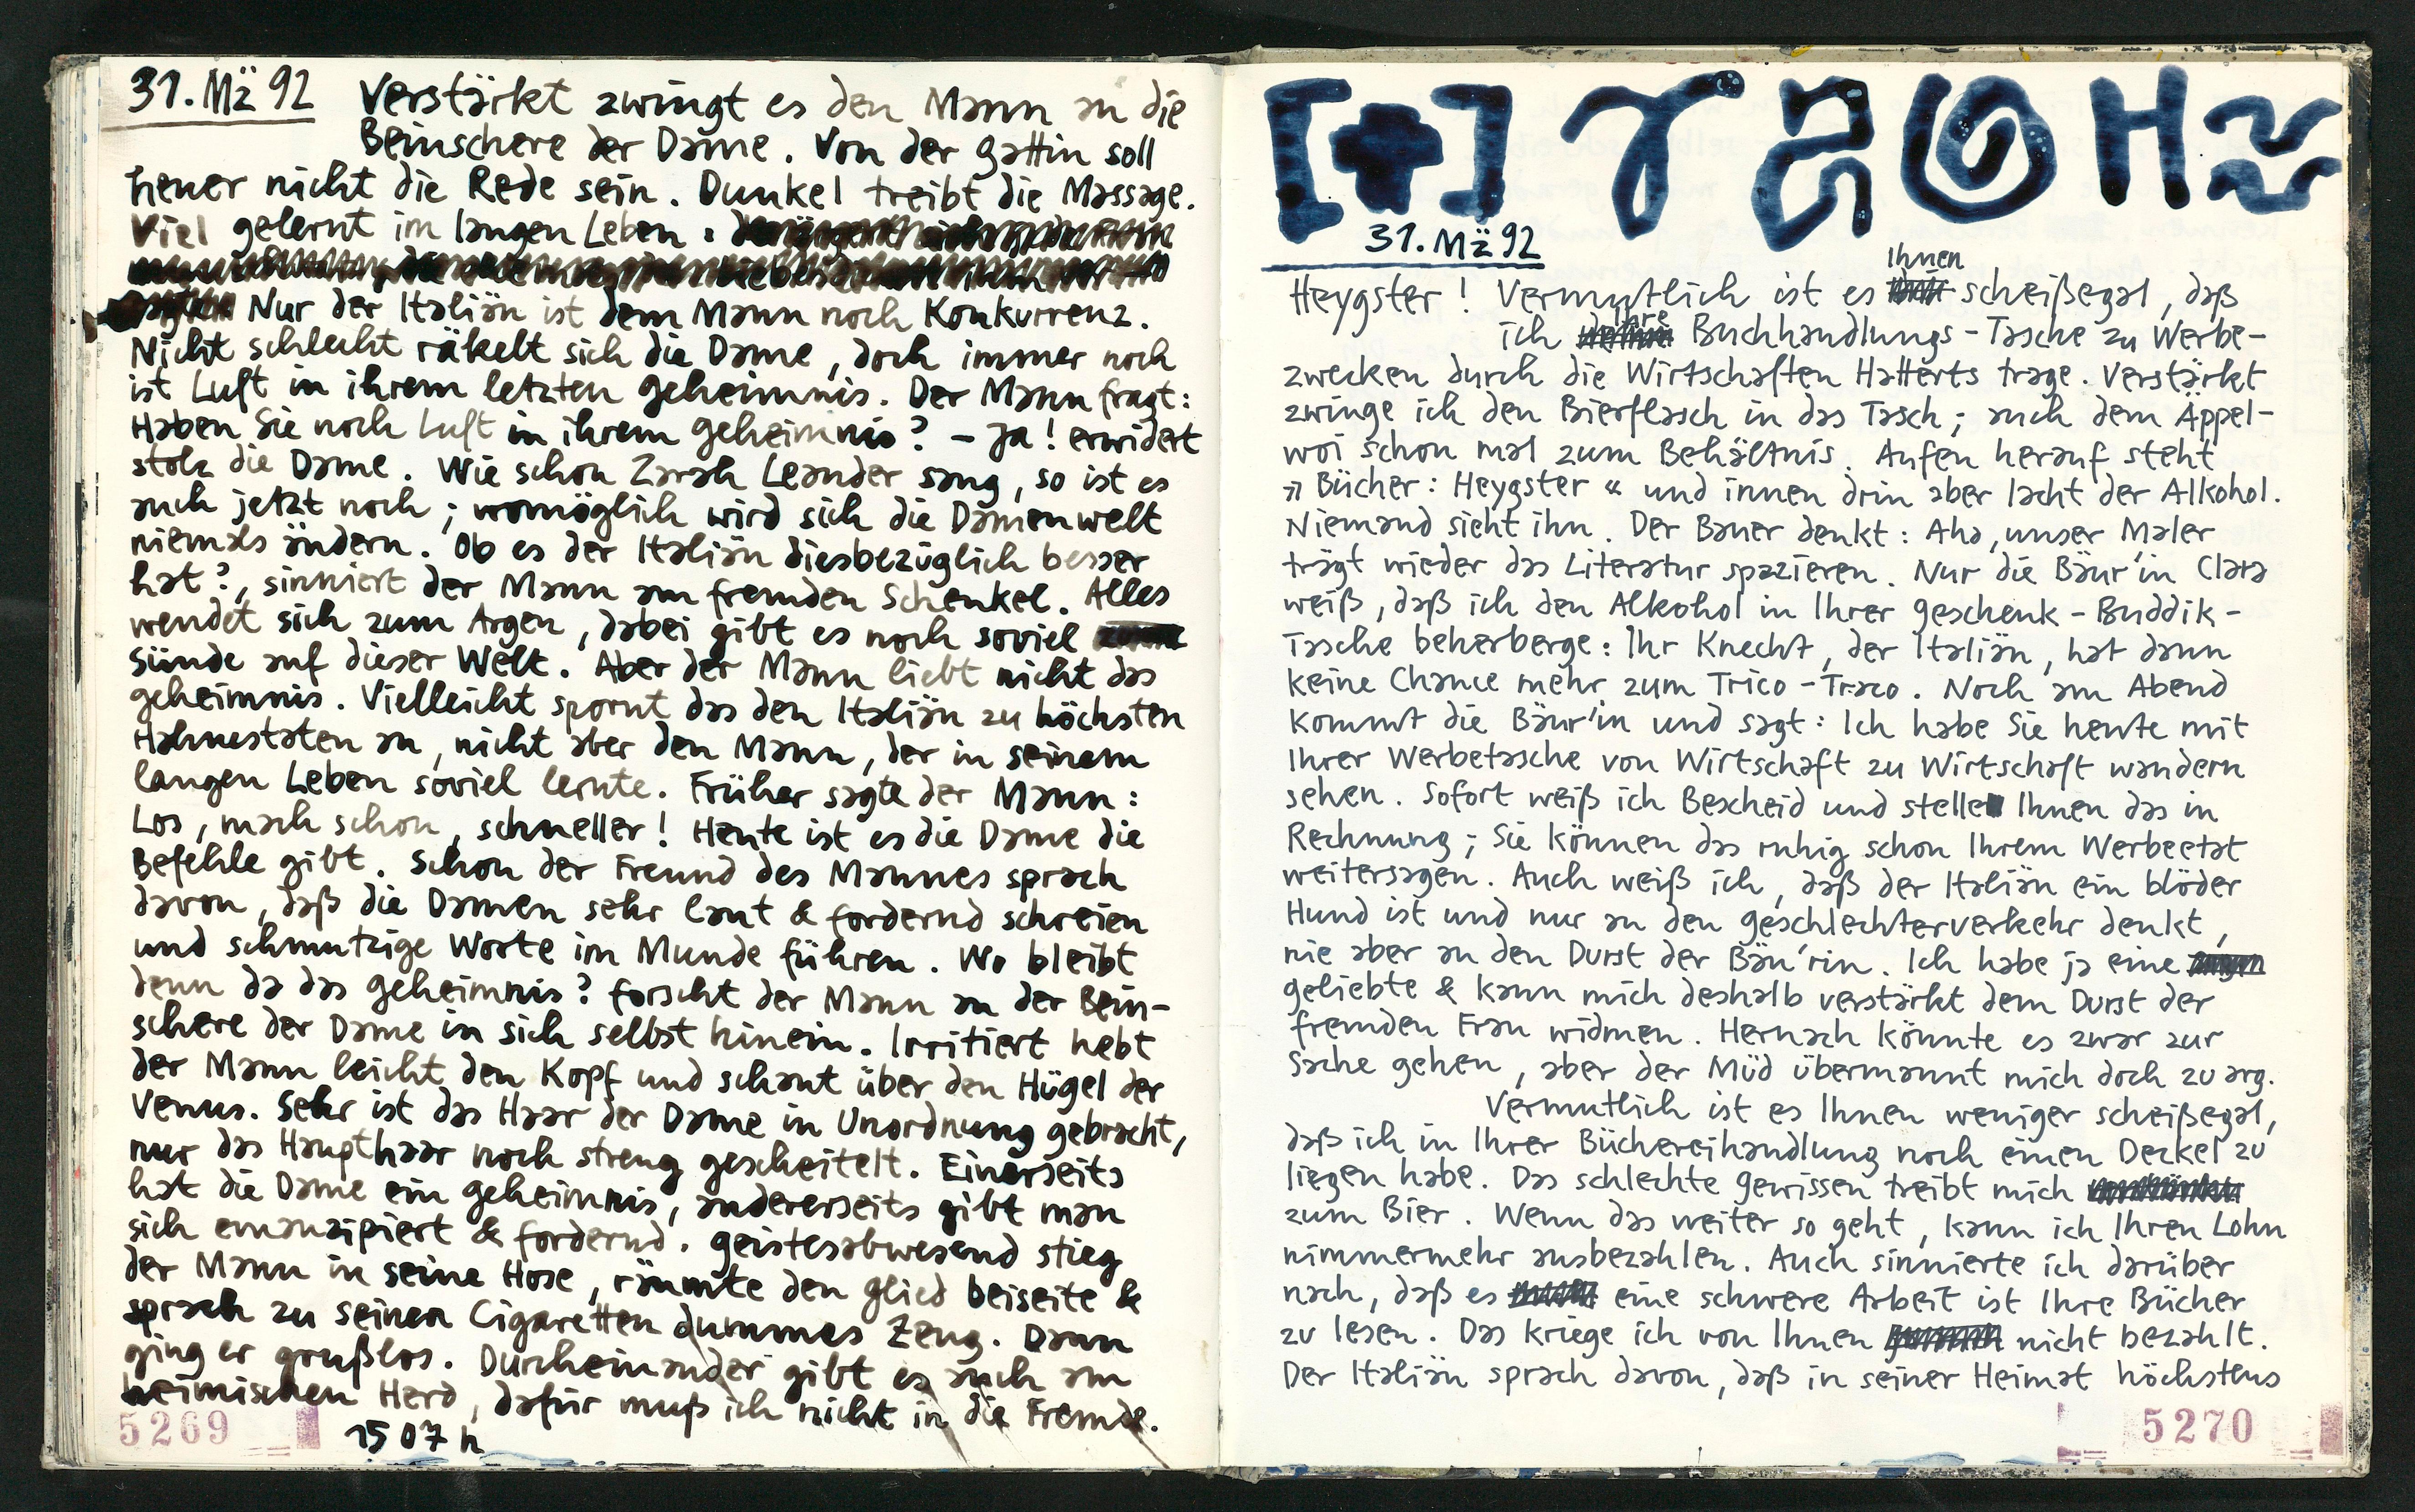 31. Mä 92 Verstärkt zwingt es den Mann an die
Beinschere der Dame. Von der Gattin soll
hener nicht die Rede sein. Dunkel treibt die Massage.
Viel gelernt im langen Leben:
Nur der Italiän ist dem Mann noch Konkurrenz.
Nicht schlecht räkelt sich die Dame, doch immer noch
ist Luft in ihrem letzten Geheimnis. Der Mann fragt:
Haben Sie noch Luft in ihrem Geheimnis? – Ja! erwidert
stolz die Dame. Wie schon Zarah Leander sang, so ist es
auch jetzt noch; womöglich wird sich die Damenwelt
niemals ändern. Ob es der Italiän diesbezüglich besser
hat?, sinniert der Mann am fremden Schenkel. Alles
wendet sich zum Argen, dabei gibt es noch soviel
Sünde auf dieser Welt. Aber der Mann liebt nicht das
Geheimnis. Vielleicht spornt das den Italiän zu höchsten
Hahnestaten an, nicht aber den Mann, der in seinem
langen Leben soviel lernte. Früher sagte der Mann:
Los, mach schon, schneller! Heute ist es die Dame die
Befehle gibt. Schon der Freund des Mannes sprach
davon, daß die Damen sehr laut & fordernd schreien
und schmutzige Worte im Munde führen. Wo bleibt
denn da das Geheimnis? forscht der Mann an der Bein-
schere der Dame in sich selbst hinein. Irritiert hebt
der Mann leicht den Kopf und schaut über den Hügel der
Venus. Sehr ist das Haar der Dame in Unordnung gebracht,
nur das Haupthaar noch streng gescheitelt. Einerseits
hat die Dame ein Geheimnis, andererseits gibt man
sich emanzipiert & fordernd. Geistesabwesend stieg
der Mann in seine Hose, räumte den Glied beiseite &
sprach zu seinen Cigaretten dummes Zeug. Dann
ging er grußlos. Durcheinander gibt es auch am
heimischen Herd, dafür muß ich nicht in die Fremde.
5269
15 07 h
[+] H
31. Mä 92
Ihnen
Heygster! Vermutlich ist es scheißegal, daß
Ihre
ich Buchhandlungs-Tasche zu Werbe-
zwecken durch die Wirtschaften Hatterts trage. Verstärkt
zwinge ich den Bierflasch in das Tasch; auch dem Äppel-
woi schon mal zum Behältnis. Aufen herauf steht
»Bücher: Heygster« und innen drin aber lacht der Alkohol.
Niemand sieht ihn. Der Bauer denkt: Aha, unser Maler
trägt wieder das Literatur spazieren. Nur die Bäur'in Clara
weiß, daß ich den Alkohol in Ihrer Geschenk-Buddik-
Tasche beherberge: Ihr Knecht, der Italiän, hat dann
keine Chance mehr zum Trico-Traco. Noch am Abend
kommt die Bäur'in und sagt: Ich habe Sie heute mit
Ihrer Werbetasche von Wirtschaft zu Wirtschaft wandern
sehen. Sofort weiß ich Bescheid und stelle Ihnen das in
Rechnung; Sie können das ruhig schon Ihrem Werbeetat
weitersagen. Auch weiß ich, daß der Italiän ein blöder
Hund ist und nur an den Geschlechterverkehr denkt,
nie aber an den Durst der Bäu'rin. Ich habe ja eine
Geliebte & kann mich deshalb verstärkt dem Durst der
fremden Frau widmen. Hernach könnte es zwar zur
Sache gehen, aber der Müd übermannt mich doch zu arg.
Vermutlich ist es Ihnen weniger scheißegal,
daß ich in Ihrer Büchereihandlung noch einen Deckel zu
liegen habe. Das schlechte Gewissen treibt mich
zum Bier. Wenn das weiter so geht, kann ich Ihren Lohn
nimmermehr ausbezahlen. Auch sinnierte ich darüber
nach, daß es eine schwere Arbeit ist Ihre Bücher
zu lesen. Das kriege ich von Ihnen nicht bezahlt.
Der Italiän sprach davon, daß in seiner Heimat höchstens
5270